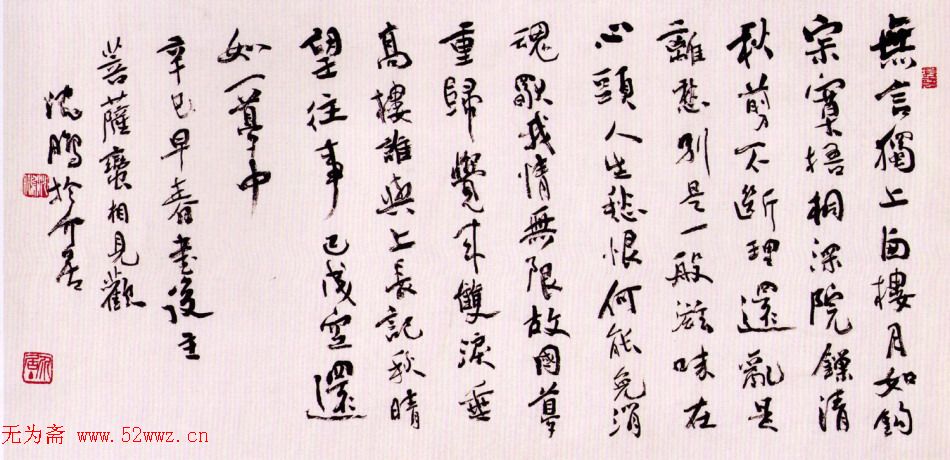 無言獨上西樓月如鈎
寂寞梧桐深院鎖清
秋剪不斷理還亂是
離愁別是一般滋味在
心頭人生愁恨何能免消
魂獨我情無限故國夢
重歸覺來雙淚垂
高樓誰與上長記秋晴
望往事已成空還
如一夢中
辛巳早春書後主
菩薩蠻相見歡
沈鵬於介居
无为斋 www.52wwz.cn